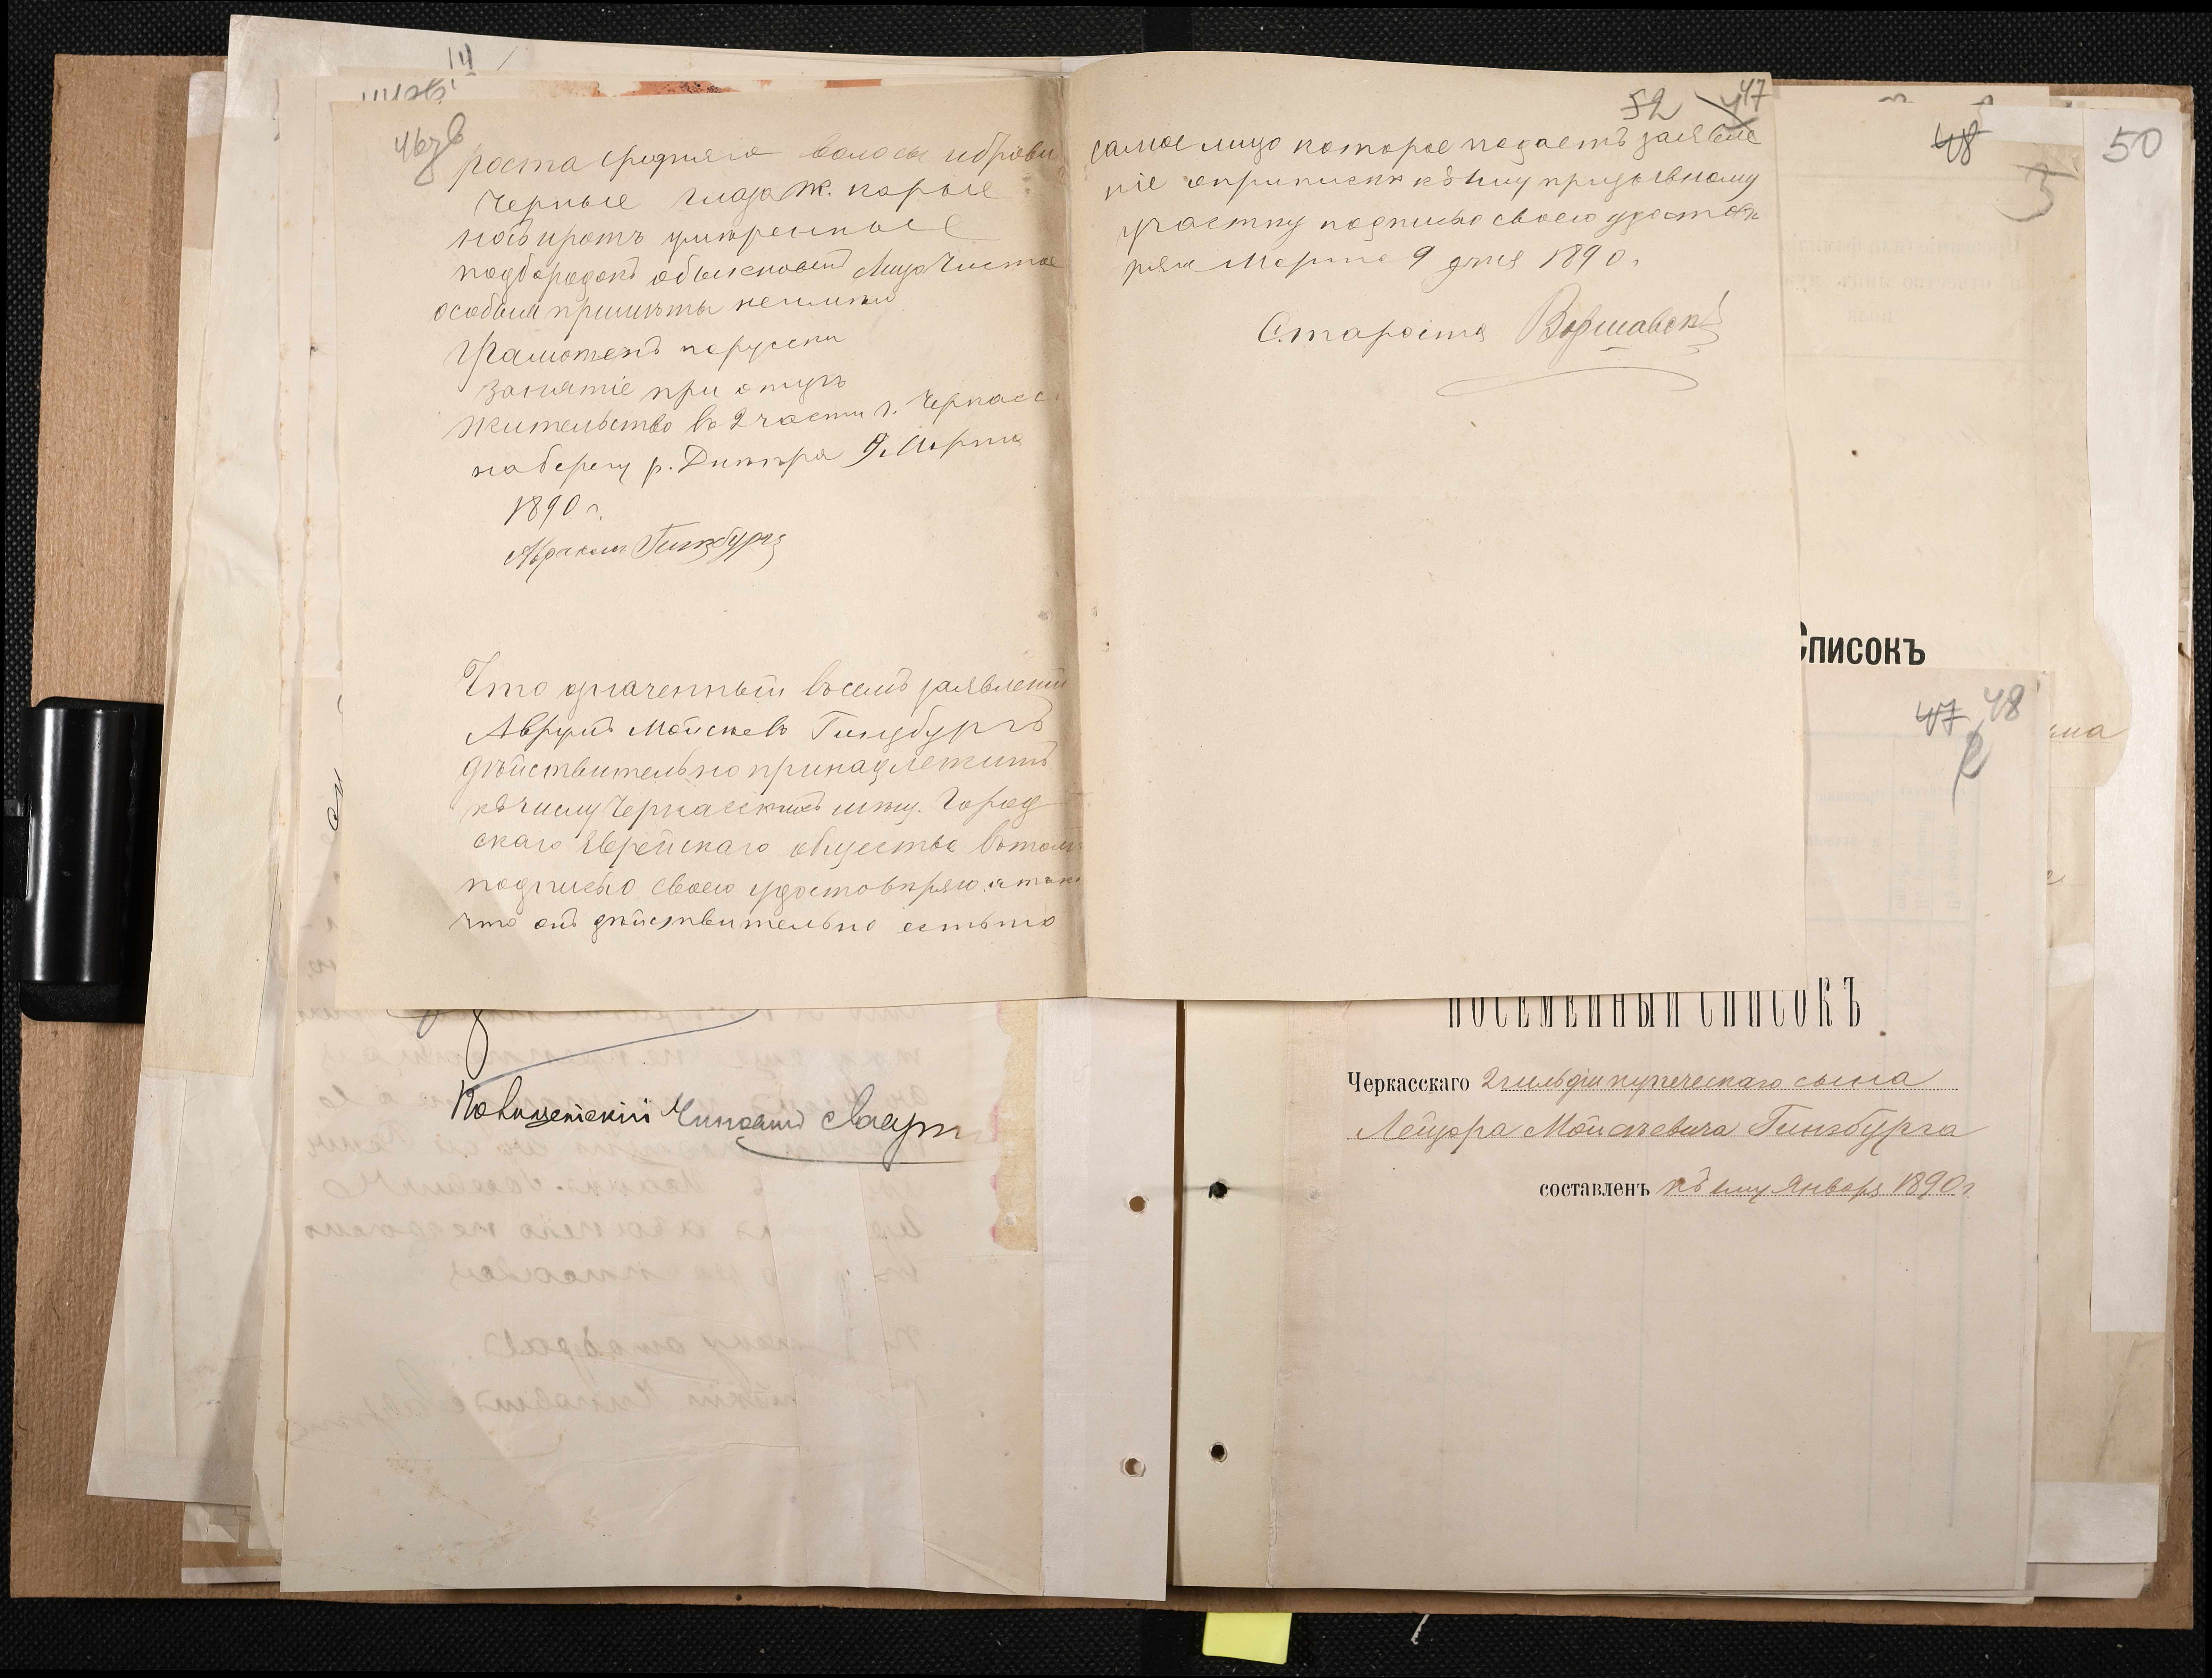 46об
роста средняго волосы и брови
черные глаза ж. карые
носъ и ротъ умѣренные
подбородокъ обыкновен Лицо чистое
особыи примѣты неимѣю
Грамотенъ порусски
Занятіе при отцѣ
Жительство во 2 части г. Черкасс.
на берегу р. Днѣпра 9 Марта
1890 г.
Абрамъ Гинзбургъ
Что означенный въ семъ заявлении
Аврумъ Мойсеевъ Гинзбургъ
дѣйствительно принадлежитъ
къ числу Черкасскихъ мѣщ. Город
скаго Еврейскаго общества въ томъ
подписью своею удостовѣряю, а также
что онъ дѣйствительно есть то
52 47
самое лицо которое подаетъ заявле
ніе о припискѣ къ 1му призывному
участку подписью своею удостовѣ
ряю Марта 9 дня 1890 г.
Староста Варшавскій
48
3
50
Списокъ
47 48
2
ПОСЕМЕЙНЫЙ СПИСОКЪ
Черкасскаго 2 гильдіи купеческаго сына
Лейзора Мойсѣевича Гинзбурга
составленъ къ 1му Января 1890 г.